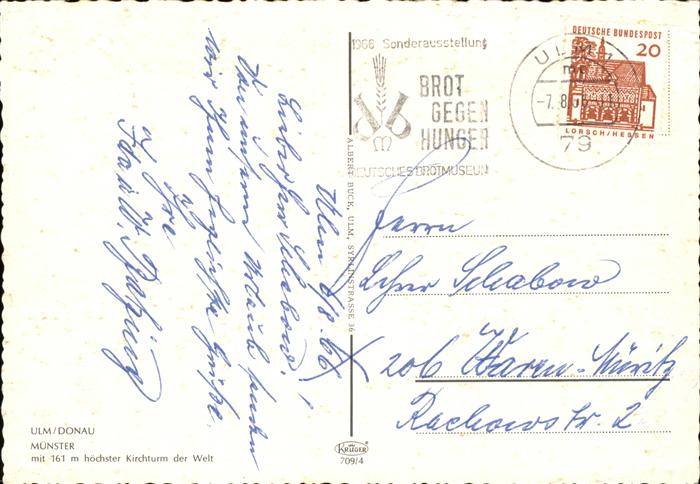 Ulm 6/8.66
Lieber Herr Schabow!
Von unserm Urlaub senden
wir Ihnen herzliche Grüße.
Ihre
1966 Sonderausstellung
BROT
GEGEN
HUNGER
DEUTSCHES BROTMUSEUM
ULM
79
DEUTSCHE BUNDESPOST
20
LORSCH/HESSEN
Herrn
Lehrer Schabow
206 Waren-Müritz
Rachowstr. 2
ALBERT BUCK, ULM, SYRLINSTRASSE 36
ULM/DONAU
MÜNSTER
mit 161 m höchster Kirchturm der Welt
KRÜGER
709/4